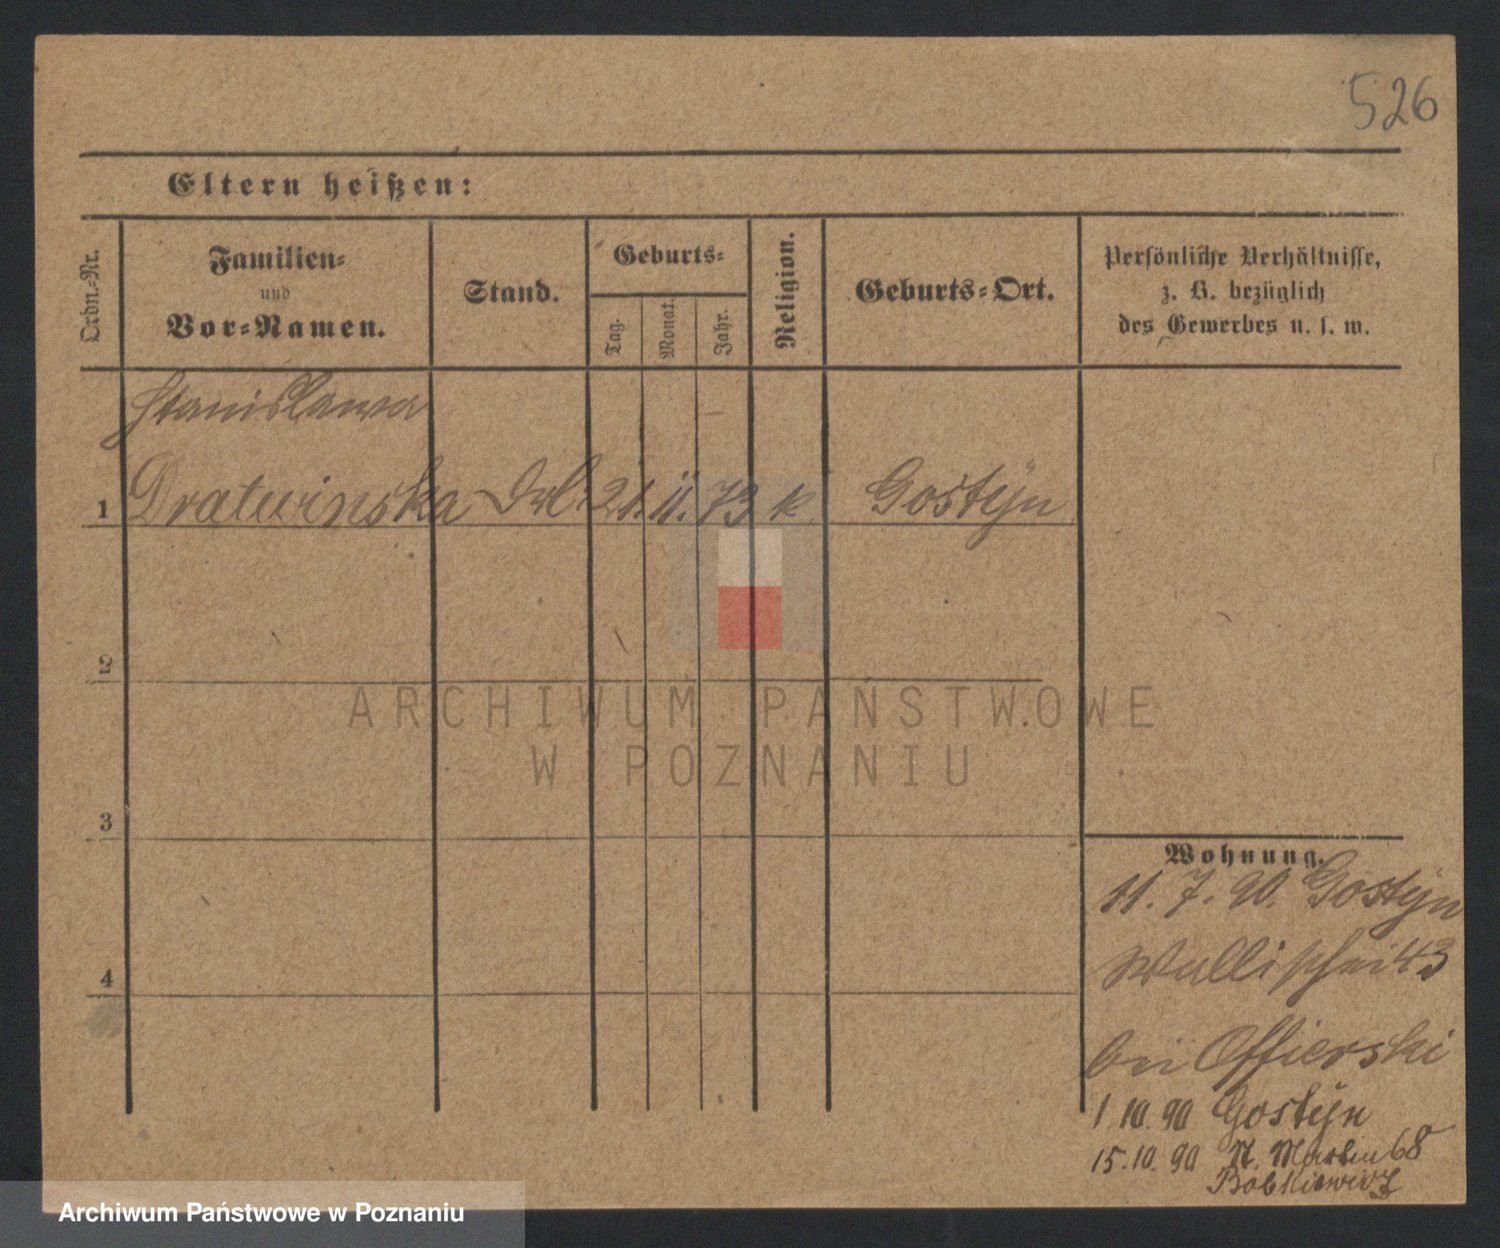 526
Eltern heißen:
Ordn.-Nr.
Familien-
und
Vor-Namen.
Stand.
Geburts-
Tag.
Monat.
Jahr.
Religion.
Geburts-Ort.
Persönliche Verhältnisse,
z. B. bezüglich
des Gewerbes u. s. w.
Stanislawa
1 Dratwinska 21. 11. 73 k. Gostÿn
2
3
4
Wohnung.
11. 7. 90. Gostÿn
Wallischei 43
bei Offierski
1. 10. 90 Gostÿn
15. 10. 90 St. Martin 68
Bobkiewicz
ARCHIWUM PAŃSTWOWE
W POZNANIU
Archiwum Państwowe w Poznaniu